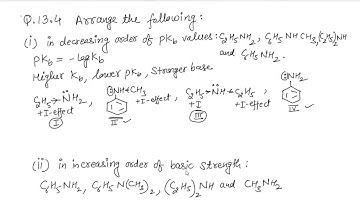 Q.13.4 Arrange the following:
(i) in decreasing order of pKb values: C2H5NH2, C6H5NHCH3, (C2H5)2NH
pKb = -logKb
and C6H5NH2.
Higher Kb, lower pKb, Stronger base
C2H5→N̈H2 NH←CH3 C2H5→N̈H←C2H5 N̈H2
+I-effect +I-effect +I +I-effect
I II III IV
(ii) in increasing order of basic strength:
C6H5NH2, C6H5N(CH3)2, (C2H5)2NH and CH3NH2